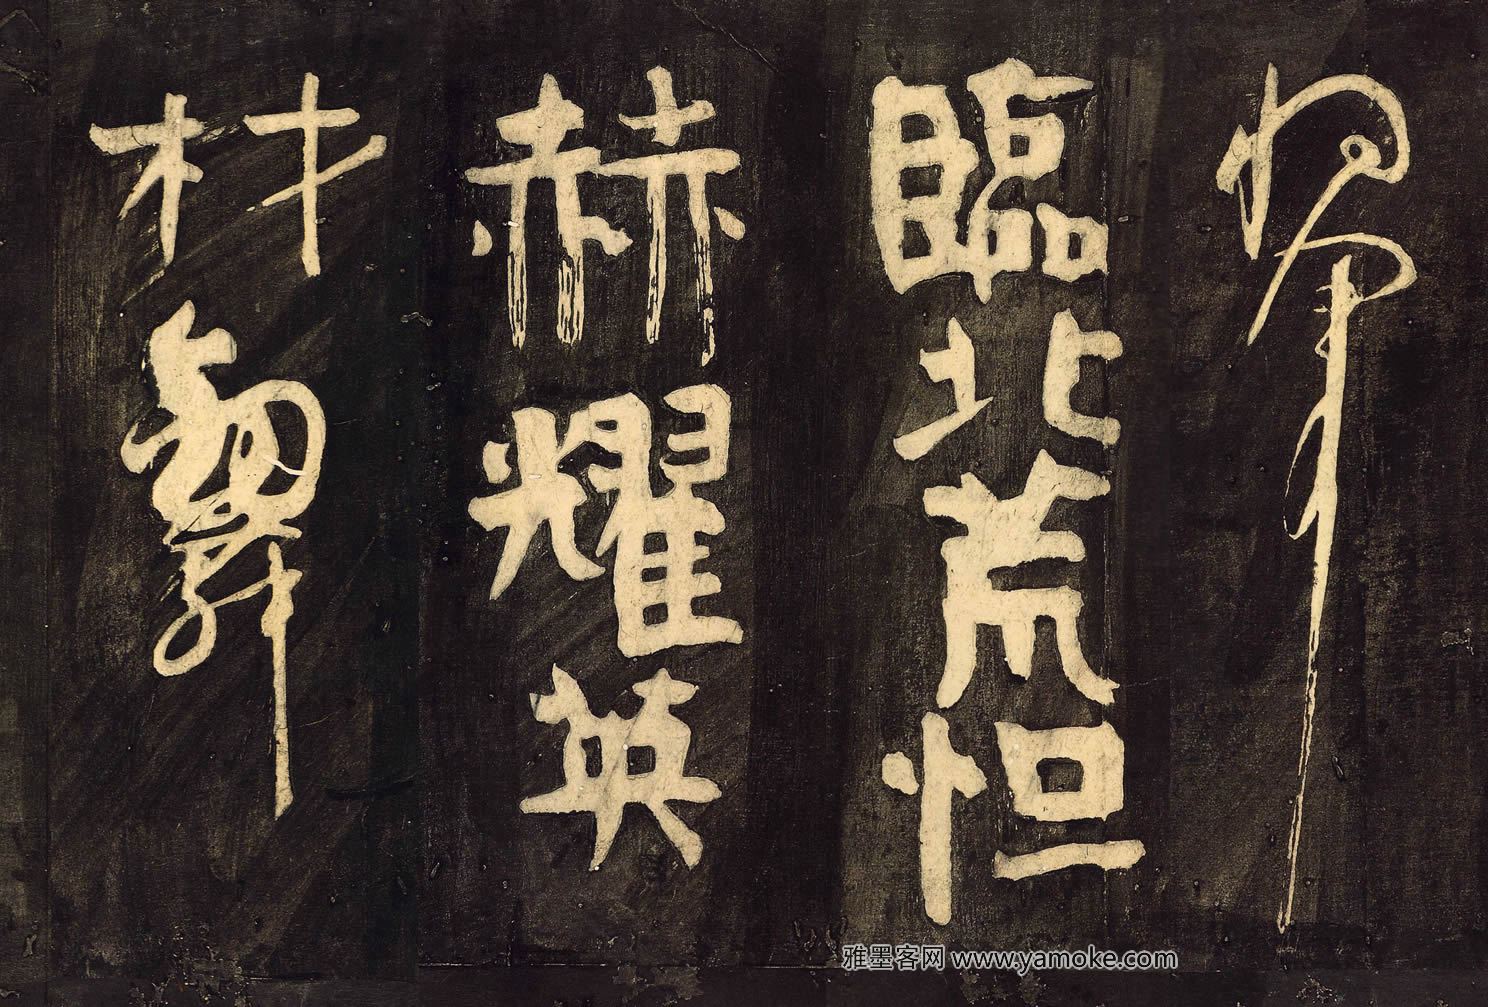 將軍
臨北荒怛
赫耀英
材舞
雅墨客网 www.yamoke.com